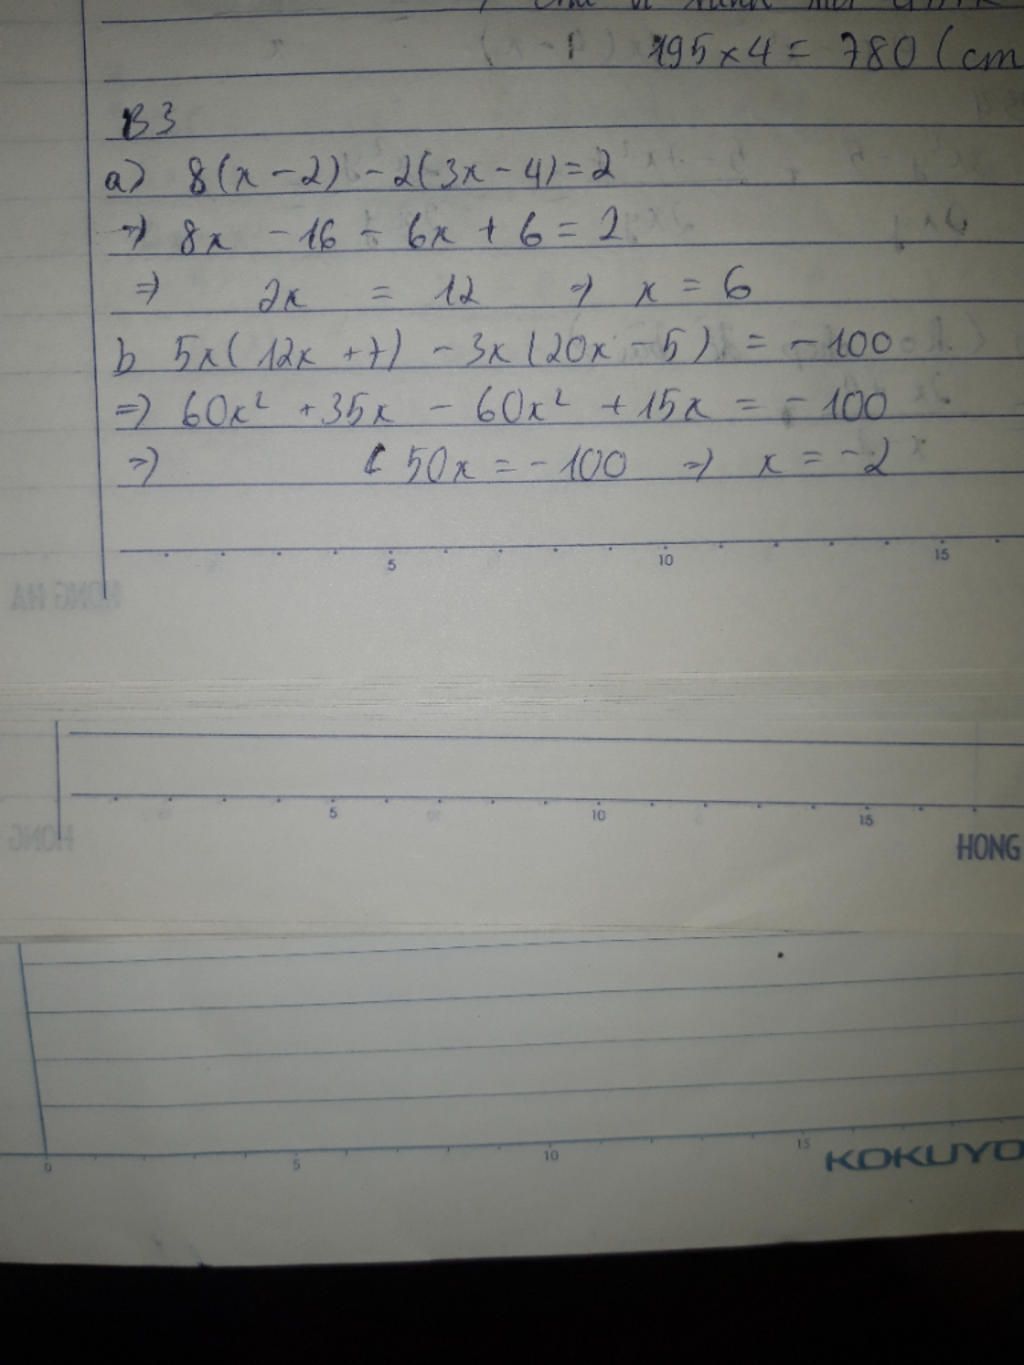 195 x 4 = 780 (cm
B3
a) 8(x - 2) - 2(3x - 4) = 2
=> 8x - 16 - 6x + 6 = 2
=> 2x = 12 => x = 6
b 5x(12x + 7) - 3x(20x - 5) = - 100
=> 60x² + 35x - 60x² + 15x = - 100
=> 50x = - 100 => x = - 2
5 10 15
HONG HA
5 10 15
HONG
HONG
0 5 10 15
KOKUYO